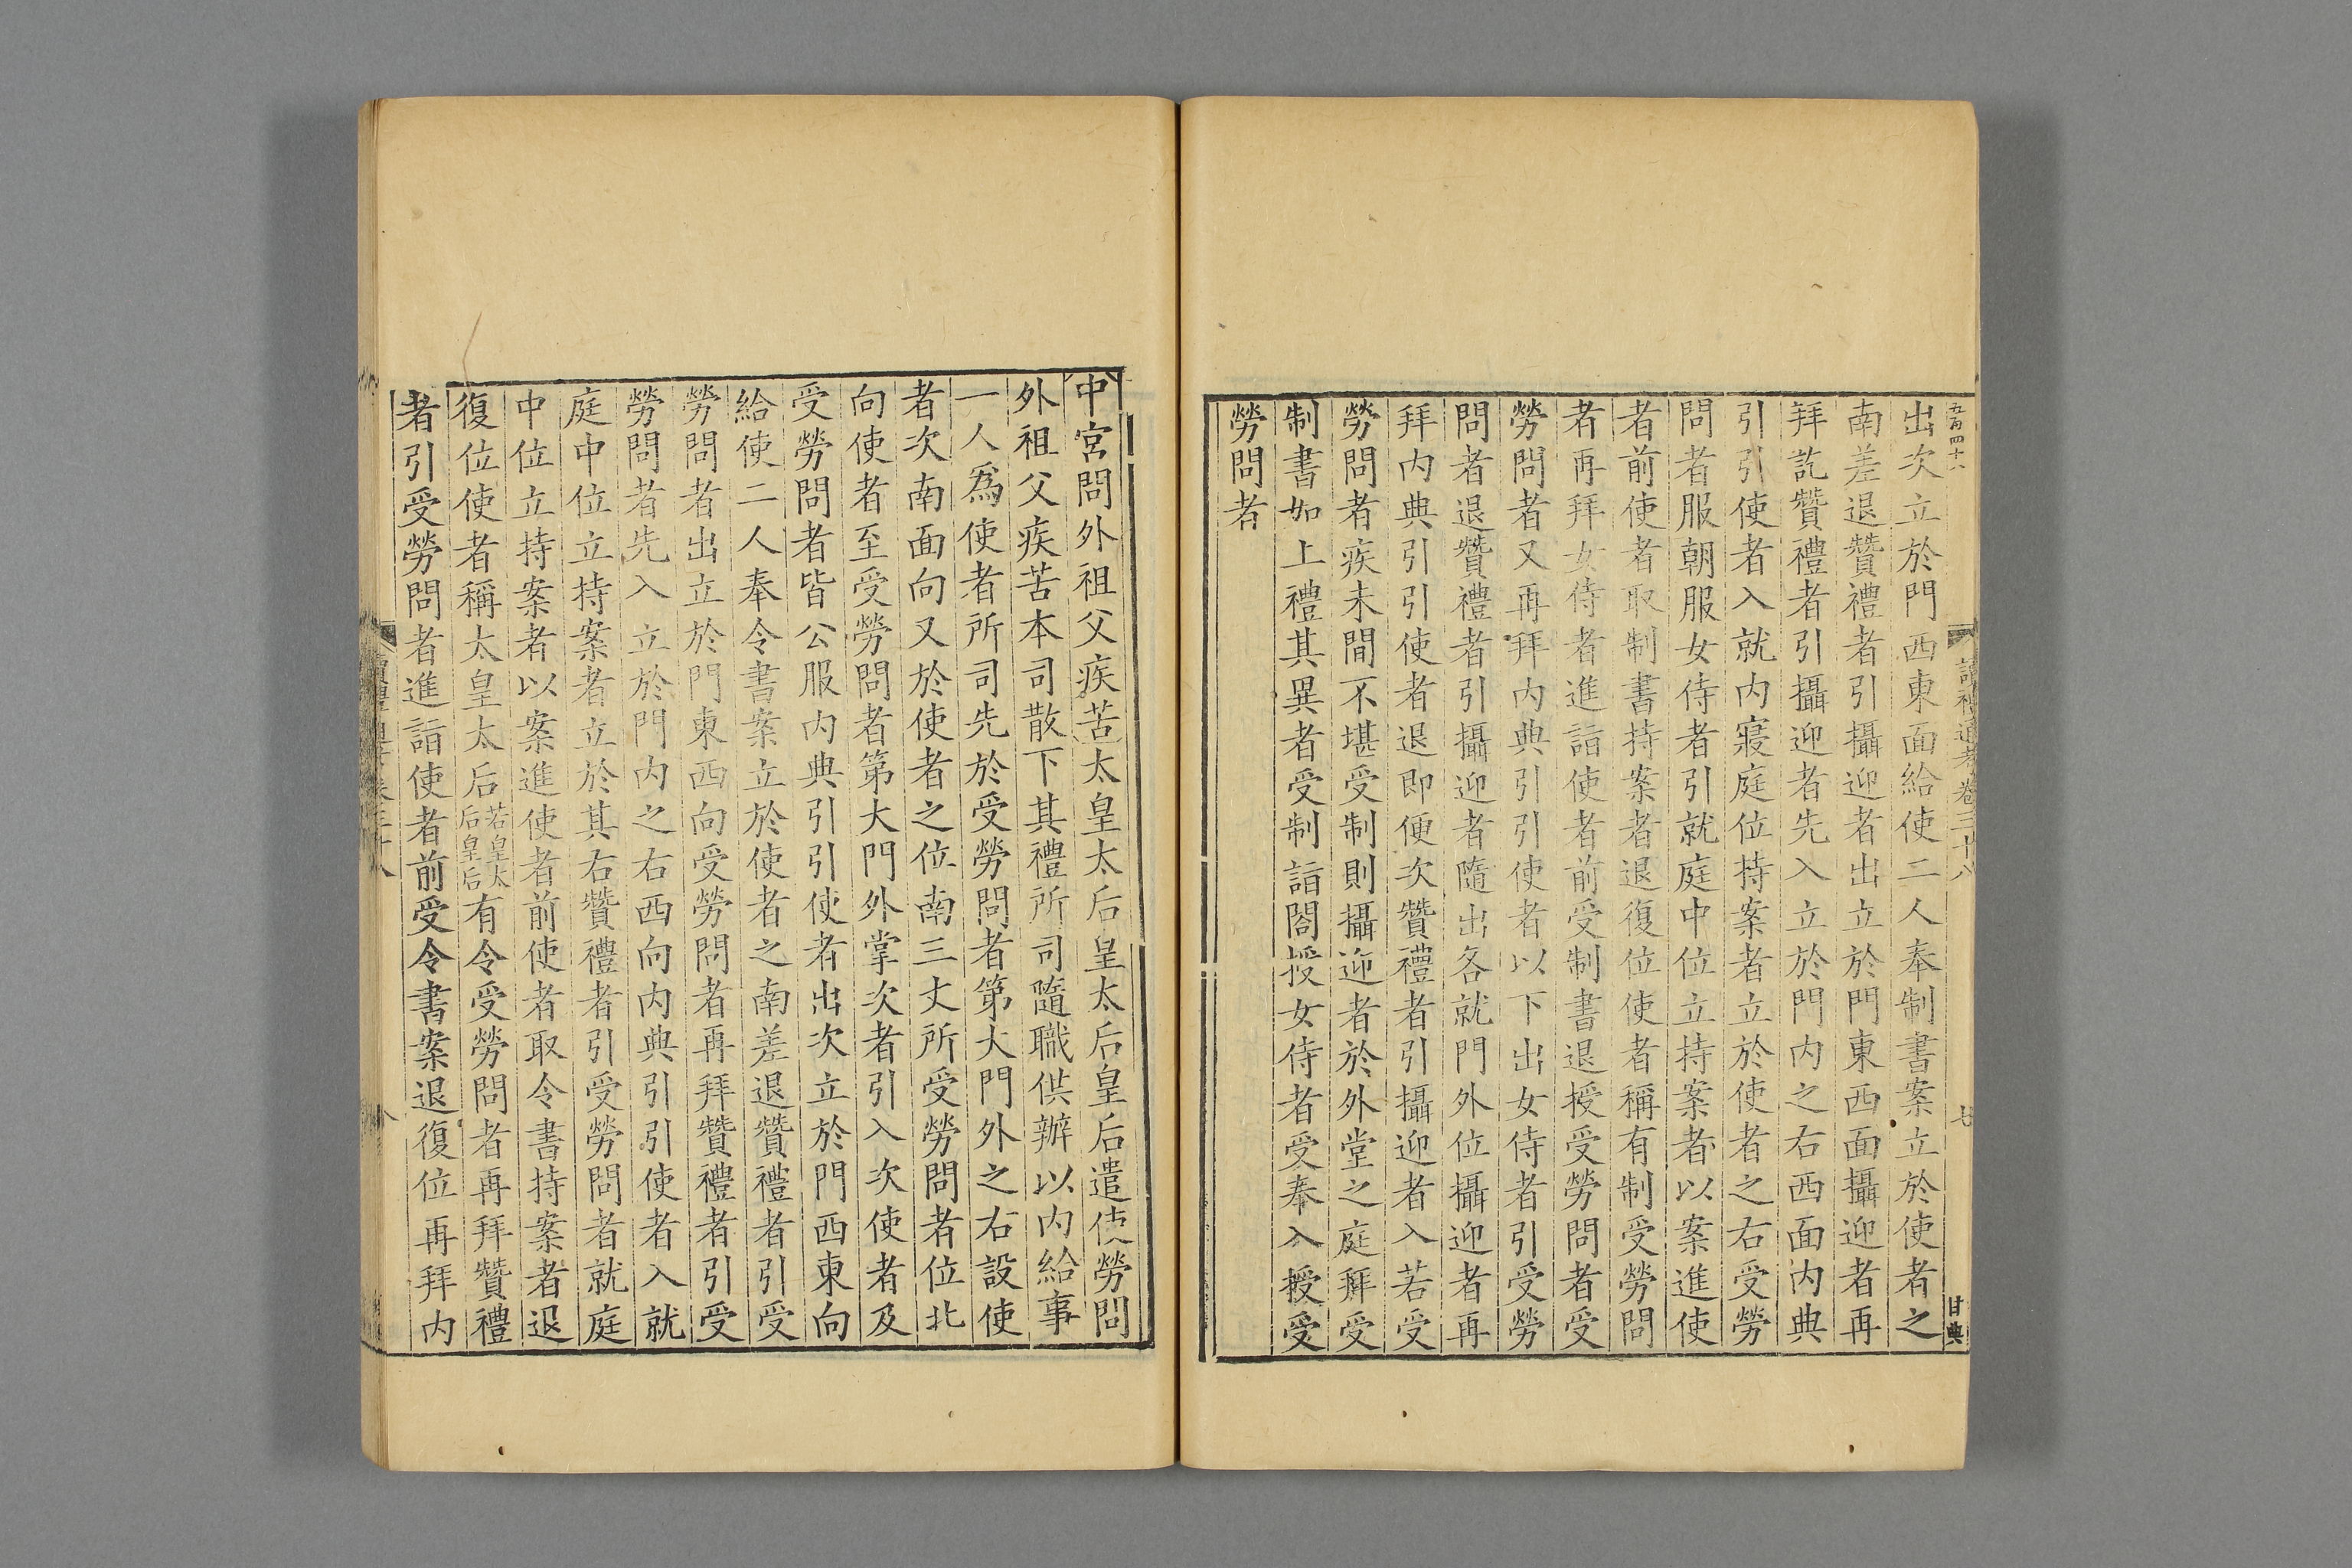 五百四十六 讀禮通考卷三十八 七 甘典
出次立於門西東面給使二人奉制書案立於使者之
南差退贊禮者引攝迎者出立於門東西面攝迎者再
拜訖贊禮者引攝迎者先入立於門内之右西面内典
引引使者入就内寢庭位持案者立於使者之右受勞
問者服朝服女侍者引就庭中位立持案者以案進使
者前使者取制書持案者退復位使者稱有制受勞問
者再拜女侍者進詣使者前受制書退授受勞問者受
勞問者又再拜内典引引使者以下出女侍者引受勞
問者退贊禮者引攝迎者隨出各就門外位攝迎者再
拜内典引引使者退即便次贊禮者引攝迎者入若受
勞問者疾未間不堪受制則攝迎者於外堂之庭拜受
制書如上禮其異者受制詣閤授女侍者受奉入授受
勞問者
中宮問外祖父疾苦太皇太后皇太后皇后遣使勞問
外祖父疾苦本司散下其禮所司隨職供辦以内給事
一人爲使者所司先於受勞問者第大門外之右設使
者次南面向又於使者之位南三丈所受勞問者位北
向使者至受勞問者第大門外掌次者引入次使者及
受勞問者皆公服内典引引使者出次立於門西東向
給使二人奉令書案立於使者之南差退贊禮者引受
勞問者出立於門東西向受勞問者再拜贊禮者引受
勞問者先入立於門内之右西向内典引引使者入就
庭中位立持案者立於其右贊禮者引受勞問者就庭
中位立持案者以案進使者前使者取令書持案者退
復位使者稱太皇太后若皇太后皇后有令受勞問者再拜贊禮
者引受勞問者進詣使者前受令書案退復位再拜内
八